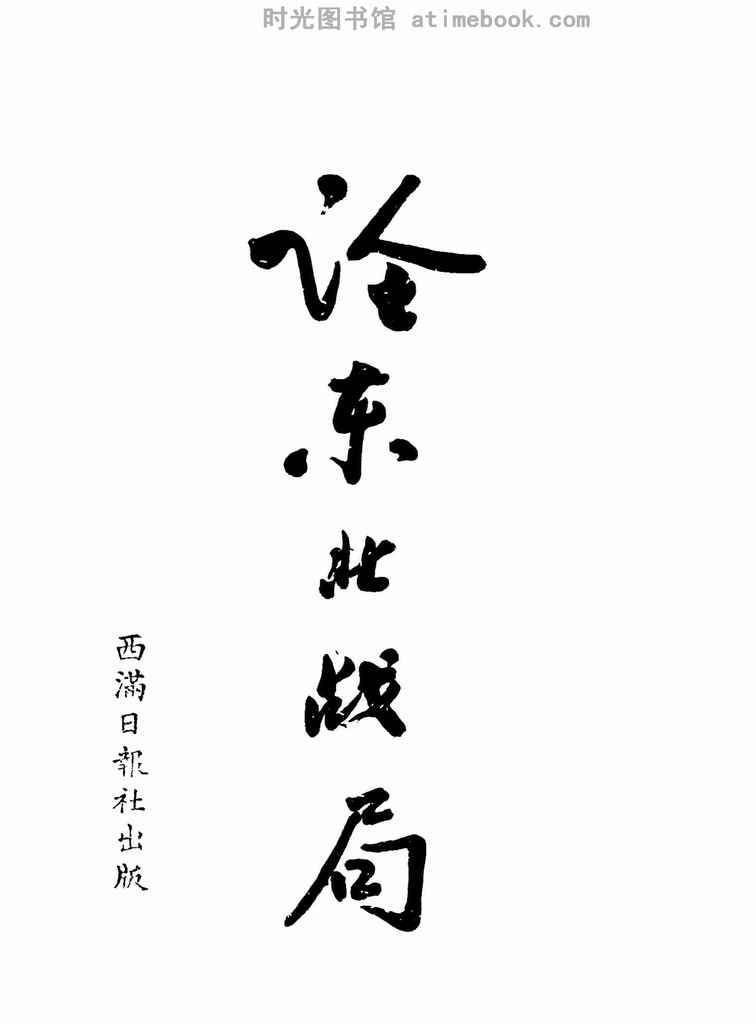 时光图书馆 atimebook.com
诠东北战局
西滿日報社出版